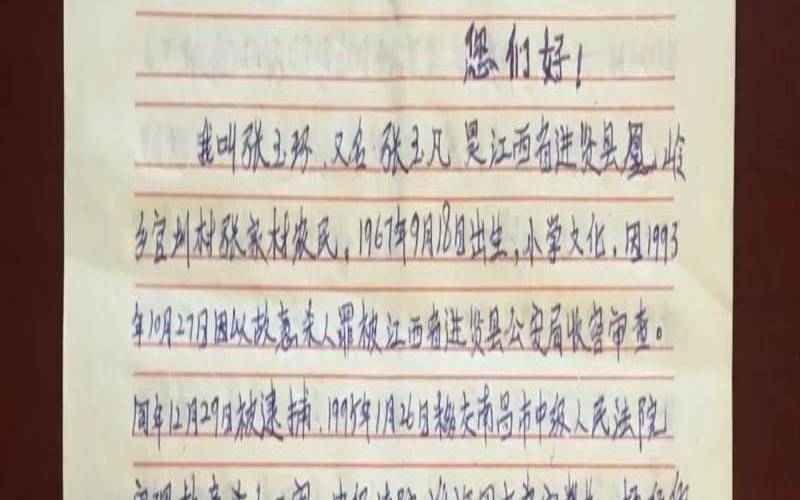 您们好！
我叫张玉环，又名张玉凡是江西省进贤县凰岭
乡官圳村张家村农民，1967年9月18日出生，小学文化，因1993
年10月27日因以故意杀人罪被江西省进贤县公安局收容审查。
同年12月29日被逮捕，1995年1月26日经南昌市中级人民法院